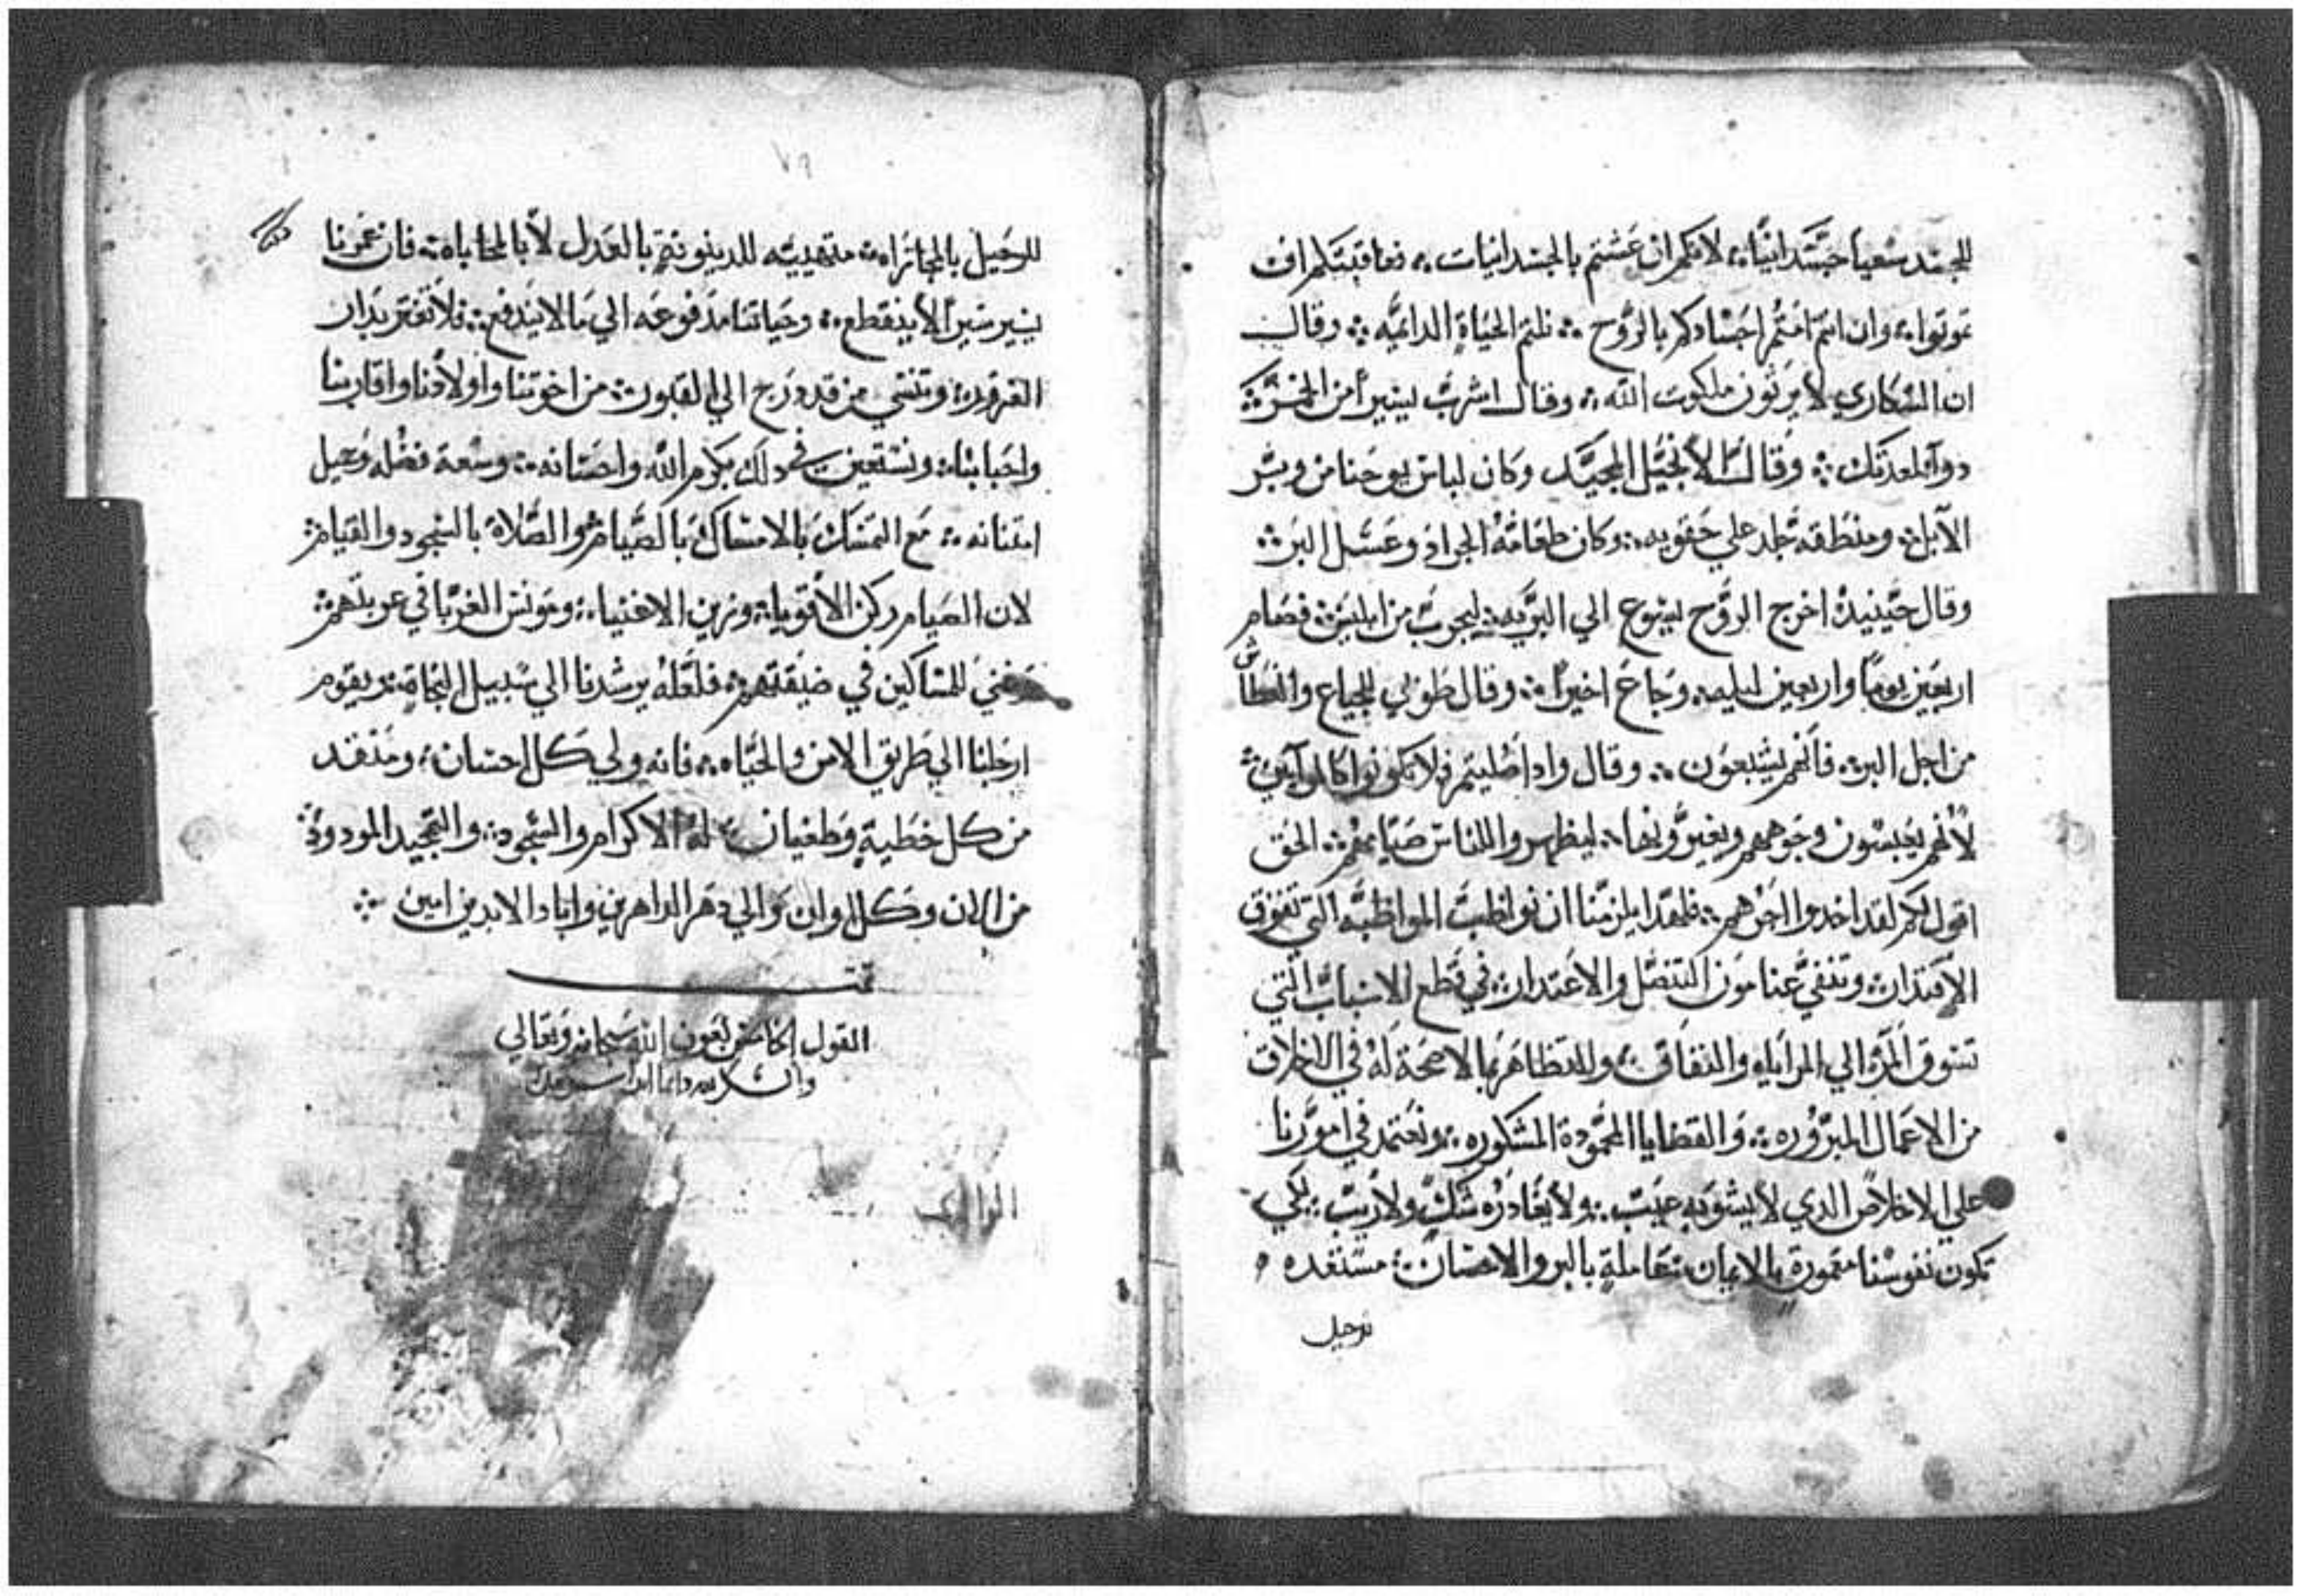 للجسد سعيا جسدانيا ܀ لانكم ان عشتم بالجسدانيات ܀ فعاقبتكم ان
تموتوا ܀ وان انتم امتم اجسادكم بالروح ܀ نلتم الحياة الدايمه ܀ وقال
ان السكاري لا يرثون ملكوت الله ܀ وقال اشرب يسيرا من الخمر ܀
دوآ لمعدتك ܀ وقال الانجيل المجيد وكان لباس يوحنا من وبر
الآبل ܀ ومنطقه جلد علي حقويه ܀ وكان طعامه الجراد وعسل البر ܀
وقال حينيد اخرج الروح ليسوع الي البريه ܀ ليجرب من ابليس ܀ فصام
اربعين يوما واربعين ليله ܀ وجاع اخيرا ܀ وقال طوبي للجياع والعطاش
من اجل البر ܀ فانهم يشبعون ܀ وقال وادا صليتم فلا تكونوا كالمرآيين ܀
لانهم يعبسون وجوههم ويغيرونها ܀ ليظهروا للناس صيامهم ܀ الحق
اقول لكم لقد اخدوا اجرهم ܀ فلهدا يلزمنا ان نواظب المواظبه التي تفوق
الاقتدار ܀ وتنفي عنا مون التنصل والاعتدار ܀ في قطع الاسباب التي
تسوق المرء الي المراياه والنفاق ܀ والتظاهر بما لا صحة له في الاخلاق
من الاعمال المبروره ܀ والقضايا المحمودة المشكوره ܀ ونعتمد في امورنا
علي الاخلاص الدي لا يشوبه عيب ܀ ولا يغادره شك ولا ريب ܀ لكي
تكون نفوسنا معمورة بالايمان ܀ معاملة بالبر والاحسان ܀ مستعده
للرحيل
٧٩
للرحيل بالمجازاه ܀ متهييه للدينونة بالعدل لا بالمحاباه ܀ فان عمرنا
يسير سيرا لا ينقطع ܀ وحياتنا مدفوعه الي ما لا يندفع ܀ فلا تغتر بدار
الغرور ܀ وتنسي من قد درج الي القبور ܀ من اخوتنا واولادنا واقاربنا
واحبابنا ܀ ونستعين في دلك بكرم الله واحسانه ܀ وسعة فضله وجميل
امتنانه ܀ مع التمسك بالامساك بالصيام ܀ والصلاة بالسجود والقيام ܀
لان الصيام ركن الاقويا ܀ وزين الاغنياء ܀ ومونس الغربا في غربتهم ܀
وغني للمساكين في ضيقتهم ܀ فلعله يرشدنا الي سبيل النجاة ܀ ويقوم
ارجلنا الي طريق الامن والحياه ܀ فانه ولي كل احسان ܀ ومنقد
من كل خطية وطغيان ܀ له الاكرام والسجود ܀ والتمجيد المودود ܀
من الان وكل اوان والي دهر الداهرين واباد الابدين امين ܀
تمت
القول الخامس بعون الله سبحانه وتعالي
والشكر لله دايما ابدا